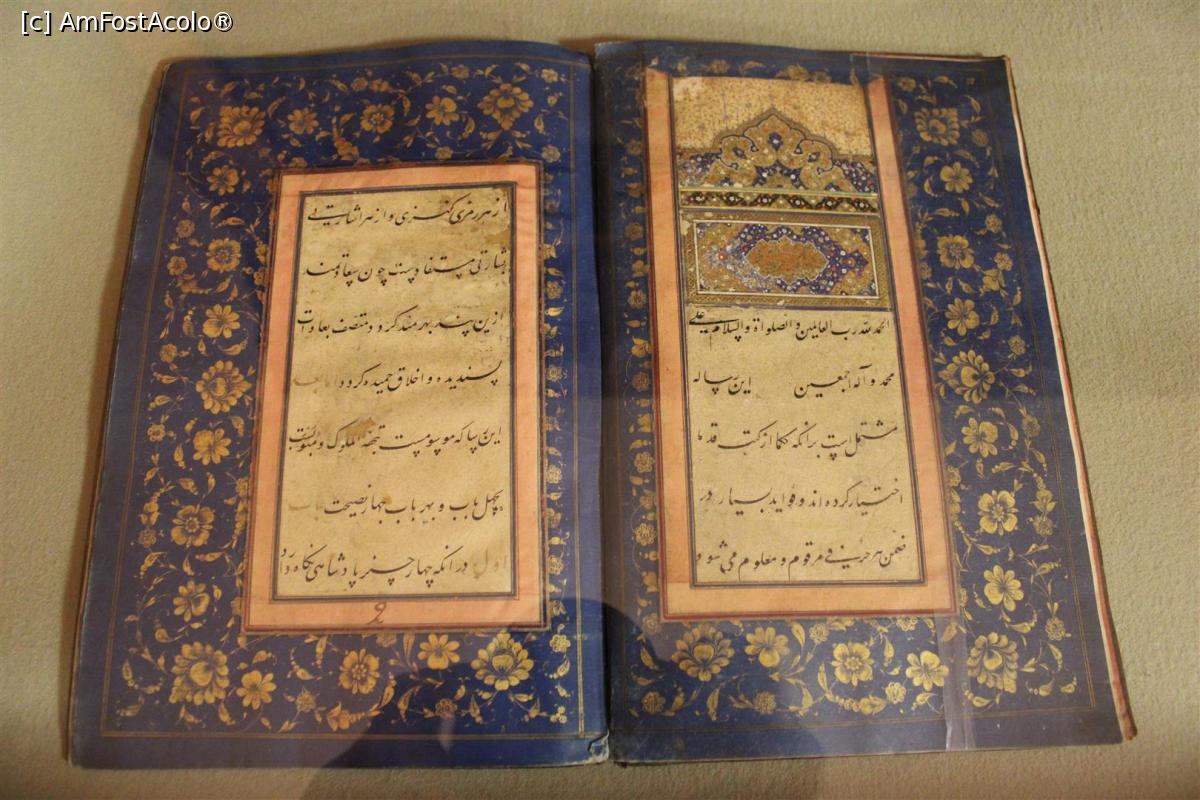 [c] AmFostAcolo®
الحمد لله رب العالمین والصلواة والسلام علی
محمد وآله اجمعین این رساله
مشتمل است برانکه حکما از کتب قدما
اختیار کرده اند و فواید بسیار در
ضمن هر حرفی مرقوم و معلوم می شود
از هر رمزی کنزی و از هر اشارتی
بشارتی مستفاد است چون سعادتمند
ازین پند بهرمند کردد متصف بعادات
پسندیده و اخلاق حمیده کردد اما بعد
این رساله موسومست تحفة الملوک و
بچهل باب و بهر باب چهار نصیحت باب
اول در انکه چهار چیز پادشاهی نکاه دارد